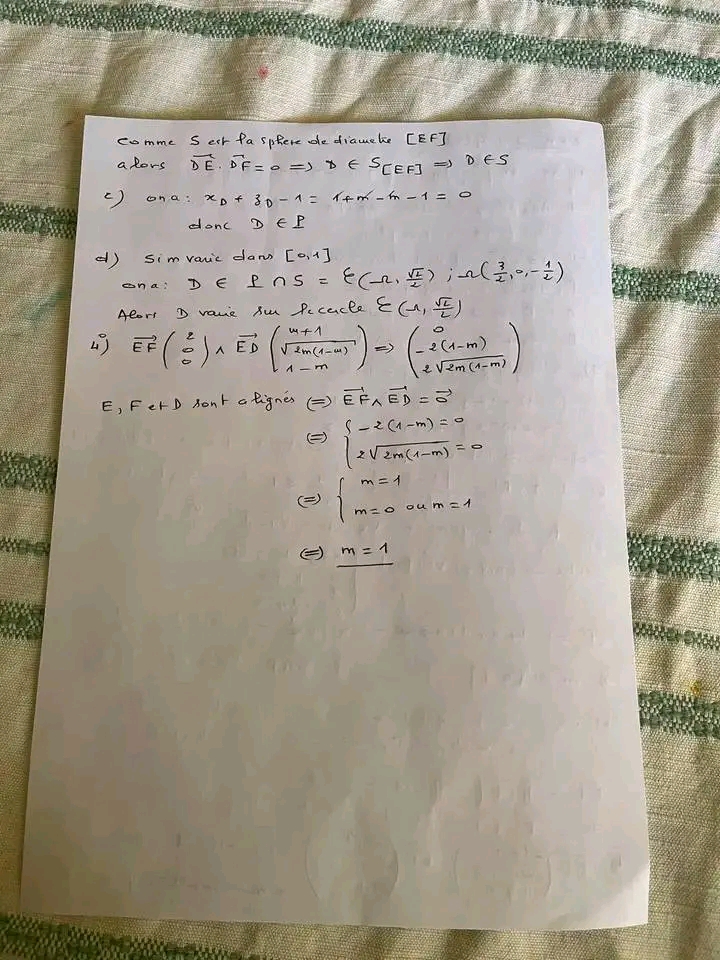 comme S est la sphere de diametre [EF]
alors DE⃗ . DF⃗ = 0 => D ∈ S[EF] => D ∈ S
c) on a : x_D + z_D - 1 = 1 + m - m - 1 = 0
donc D ∈ P
d) Si m varie dans [0,1]
on a : D ∈ P ∩ S = ℰ(Ω, √2/2) ; Ω(3/2, 0, -1/2)
Alors D varie sur le cercle ℰ(Ω, √2/2)
4°) EF⃗ (2 0 0) ∧ ED⃗ (m+1 √2m(1-m) 1-m) => (0 -2(1-m) 2√2m(1-m))
E, F et D sont alignés (=) EF⃗ ∧ ED⃗ = 0⃗
(=) { -2(1-m) = 0
2√2m(1-m) = 0
(=) { m = 1
m = 0 ou m = 1
(=) m = 1